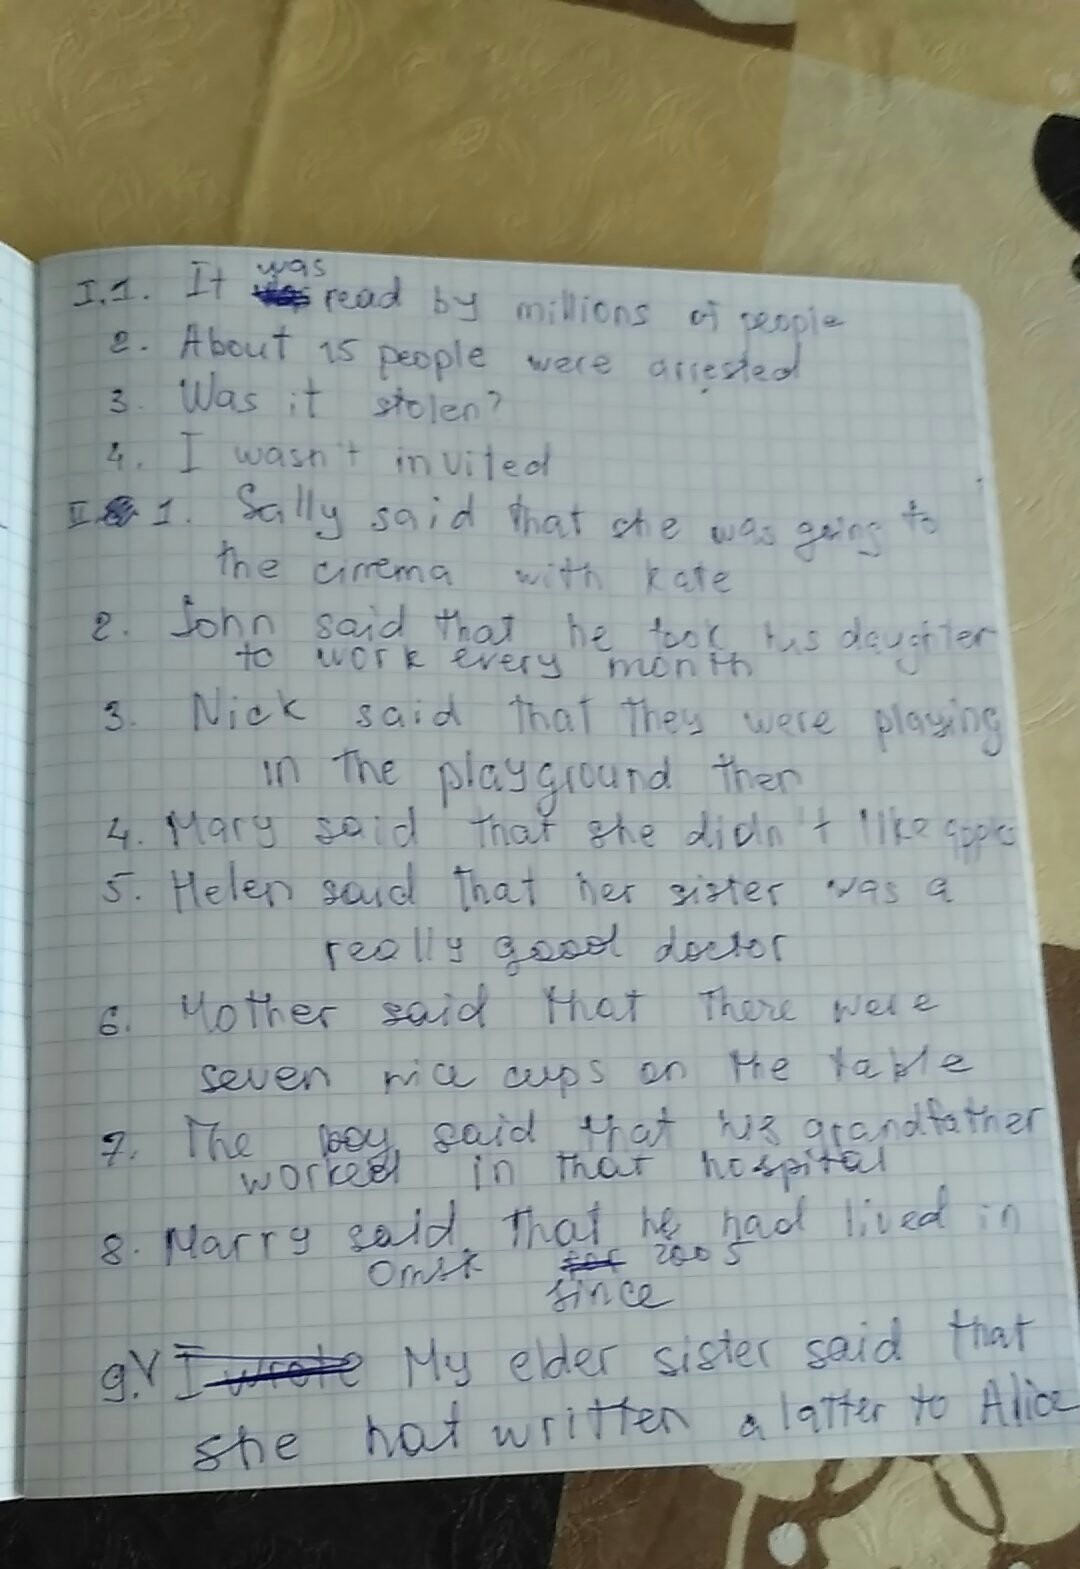 I.1. It was read by millions of people
2. About 15 people were arrested
3. Was it stolen?
4. I wasn't invited
II. 1. Sally said that she was going to
the cinema with Kate
2. John said that he took his daughter
to work every month
3. Nick said that they were playing
in the playground then
4. Mary said that she didn't like apples
5. Helen said that her sister was a
really good doctor
6. Mother said that there were
seven nice cups on the table
7. The boy said that his grandfather
worked in that hospital
8. Marry said that he had lived in
Omsk for 2005
since
9. I wrote My elder sister said that
she hat written a latter to Alice